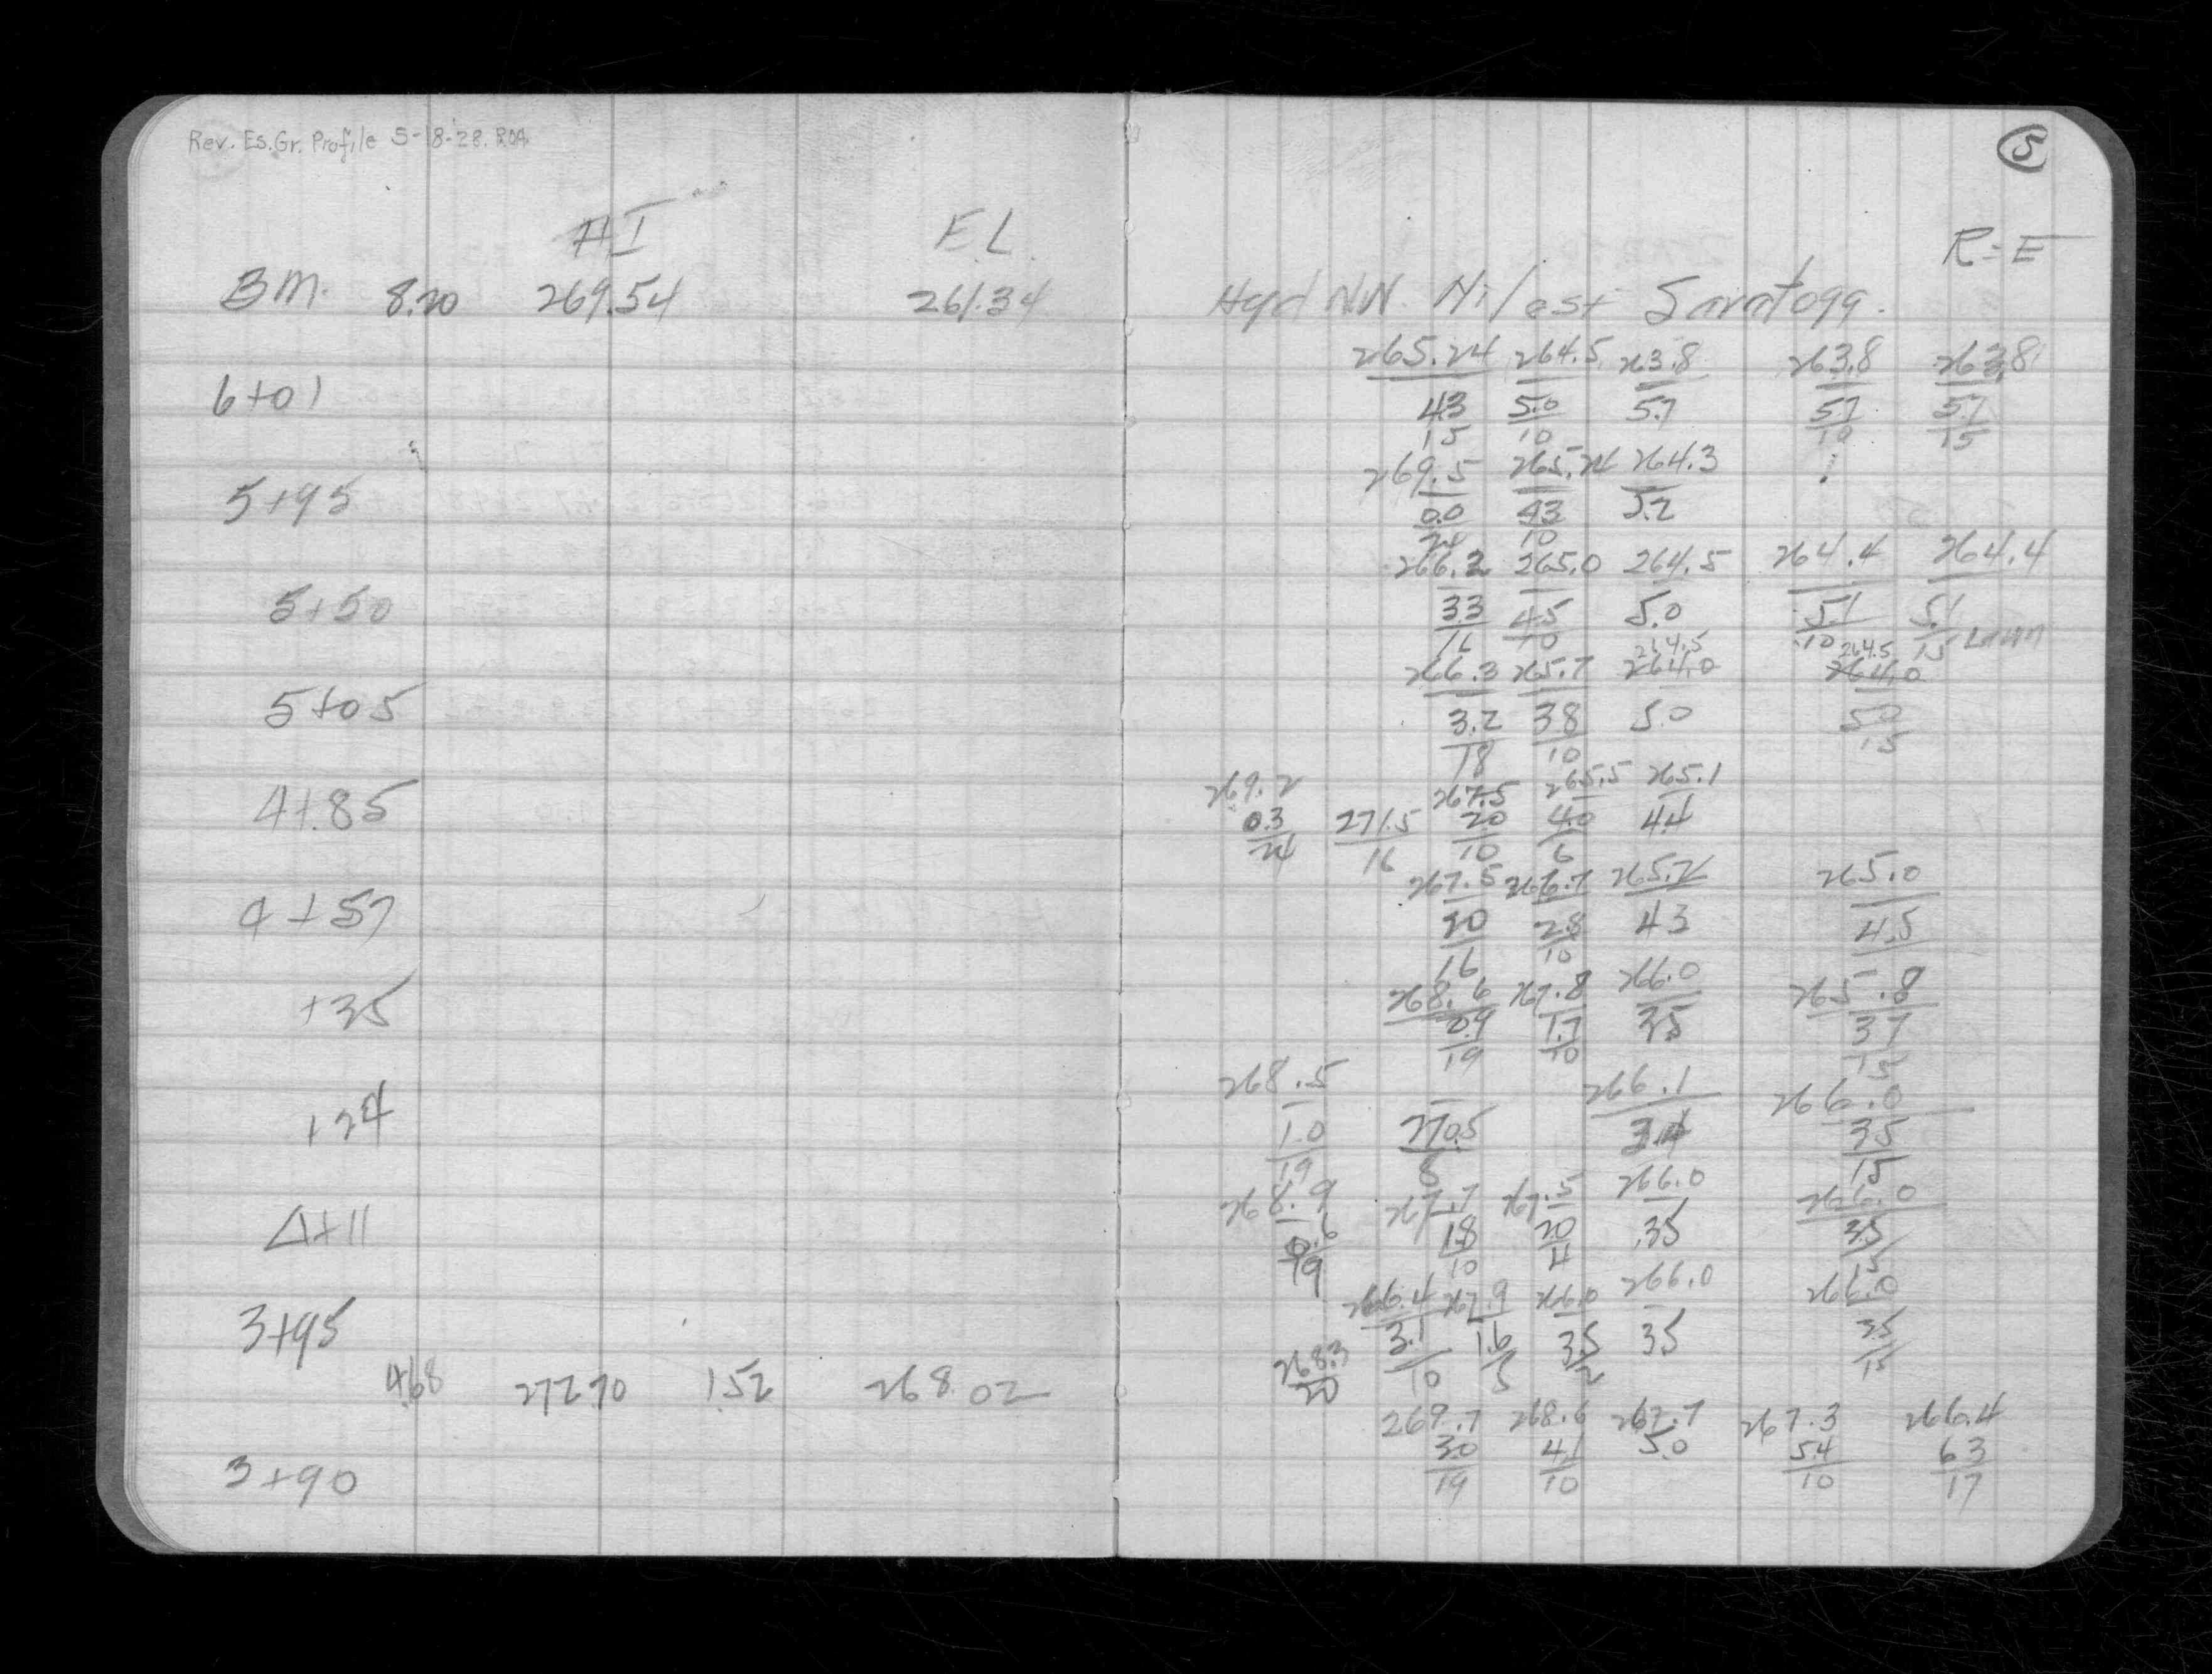 Rev. Es. Gr. Profile 5-18-'28. RDA.
HI EL
BM. 8.20 269.54 261.34
6+01
5+95
5+50
5+05
4+85
4+57
+35
+24
4+11
3+95
4.68 272.70 1.52 268.02
3+90
5
R=E
Hyd N.W. Hi/est Saratoga.
265.24 264.5 263.8 263.8 263.8
4.3 5.0 5.7 5.7 5.7
15 10 10 15
269.5 265.24 264.3
0.0 43 5.2
24 10
266.2 265.0 264.5 264.4 264.4
3.3 4.5 5.0 5.1 5.1
16 10 10 15 Lawn
264.5 264.5
266.3 265.7 264.0 264.0
3.2 38 5.0 50
18 10 15
269.2 267.5 265.5 265.1
0.3 271.5 20 4.0 4.4
24 16 10 6
267.5 266.7 265.2 265.0
20 2.8 43 4.5
16 10
268.6 267.8 266.0 265.8
0.9 1.7 35 37
19 10 15
268.5 266.1 266.0
1.0 270.5 3.4 35
19 8 15
268.9 267.7 267.5 266.0 266.0
0.6 1.8 20 35 3.5
19 10 4 15
266.4 267.9 266.0 266.0 266.0
3.1 1.6 3.5 35 35
10 5 2 15
268.3
20
269.7 268.6 267.7 267.3 266.4
30 4.1 5.0 54 63
19 10 10 17